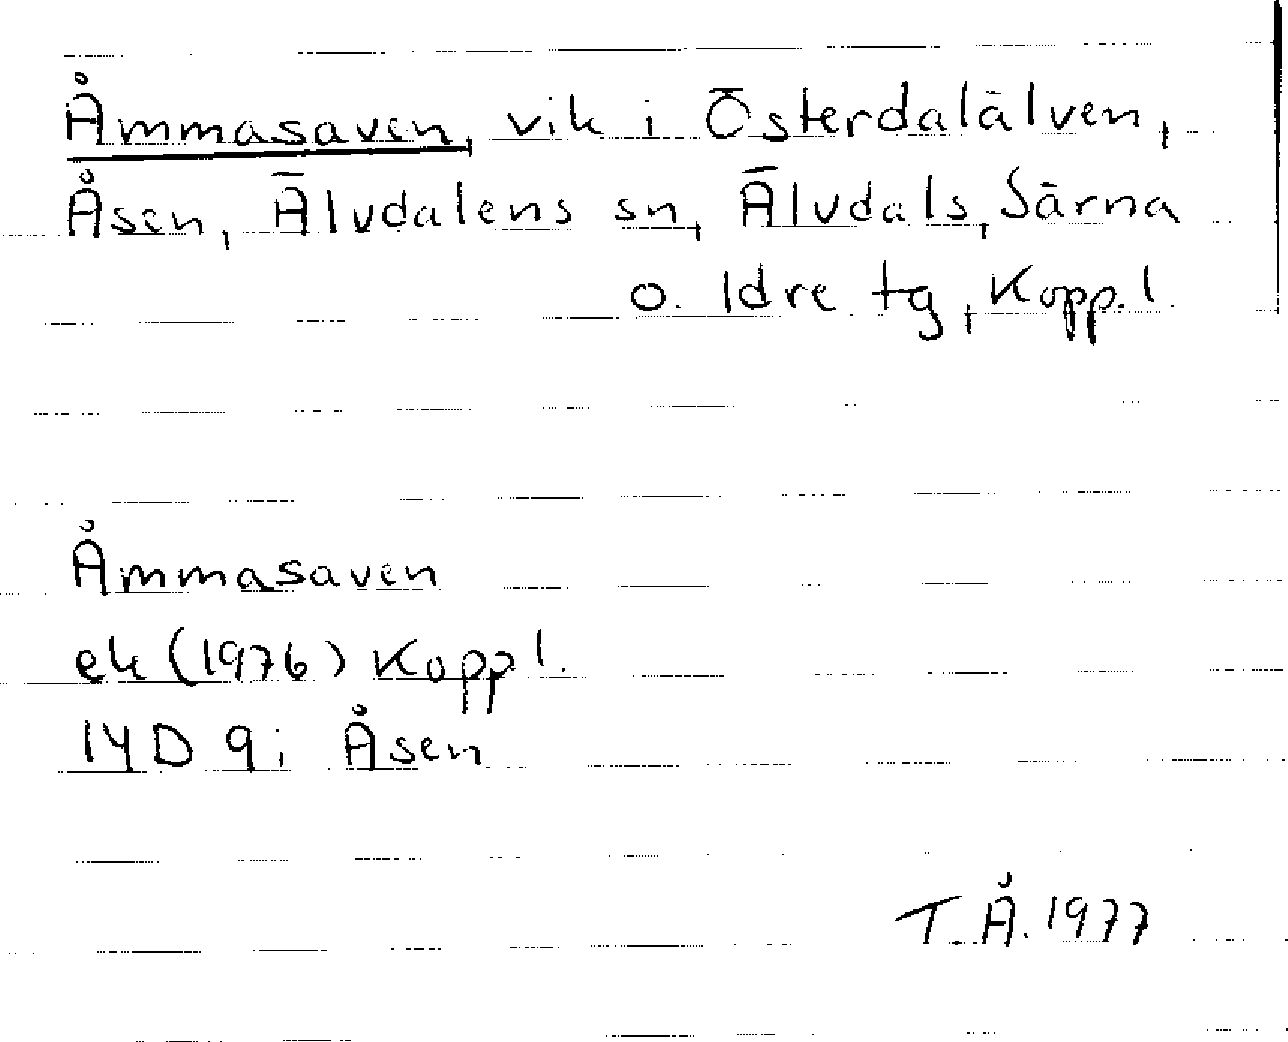 Åmmasaven, vik i Österdalälven,
Åsen, Älvdalens sn, Älvdals, Särna
o. Idre tg, Kopp.l.
Åmmasaven
ek (1976) Koppl.
14D 9i Åsen
T.Å. 1977